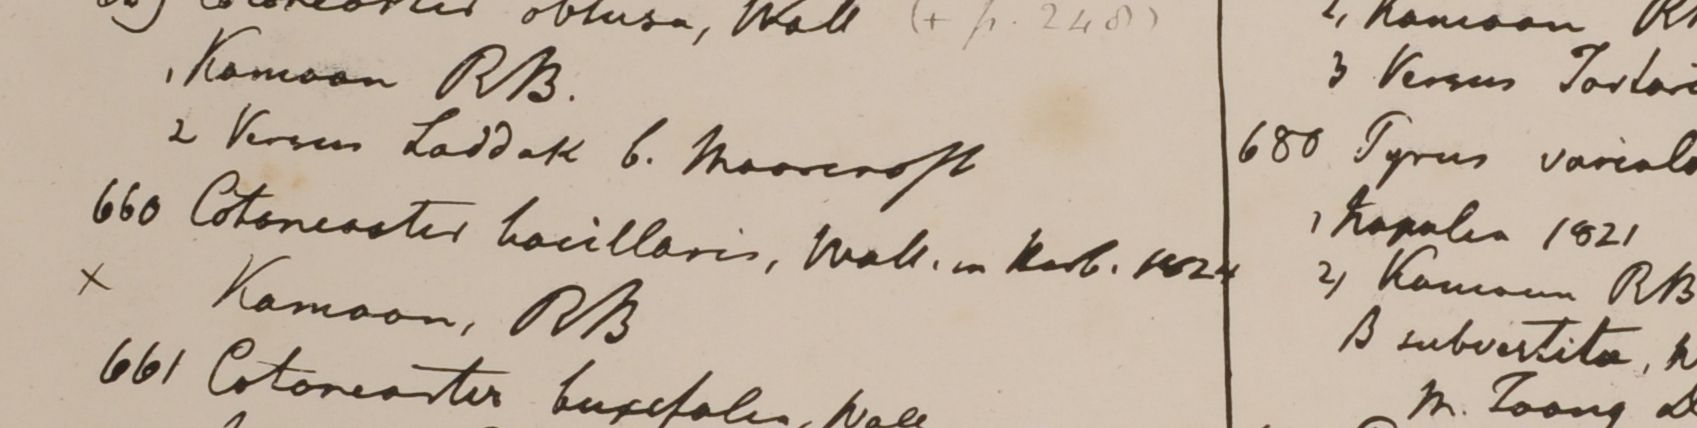 Cotoneaster obtusa, Wall (+ p. 248)
1 Kamaon RB.
2 Versus Laddak b. Moorcroft
660 Cotoneaster bacillaris, Wall. in Herb. 1824
x Kamaon, RB
661 Cotoneaster buxifolia, Wall
2, Kamaon
3 Versus
680 Pyrus
1 Napalia 1821
2, Kamaon RB
B subvestita,
M. Toong